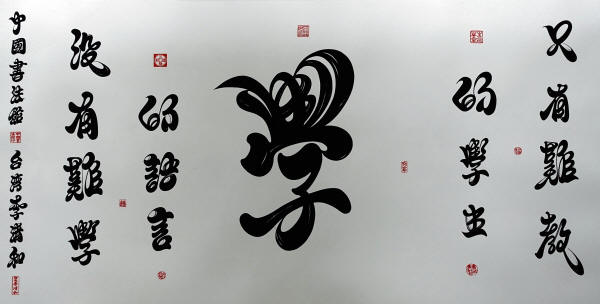 只有難教
的學生
學
的語言
没有難學
中國書法
台湾李和